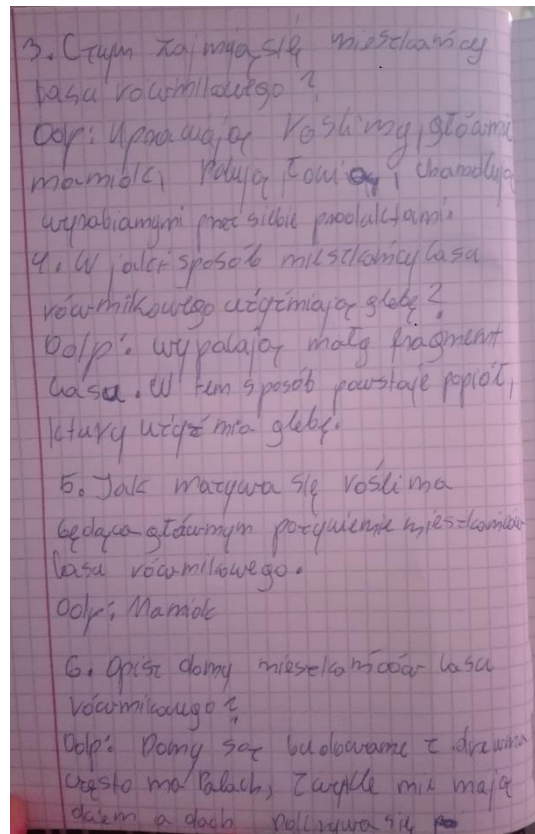 3. Czym zajmują się mieszkańcy
lasu równikowego?
Odp: Uprawiają rośliny, głównie
maniok, Polują, łowią, chandlują
wyrabianymi prez siebie produktami.
4. W jaki sposób mieszkańcy lasu
równikowego użyźniają glebę?
Odp: wypalają mały fragment
lasu. W ten sposób powstaje popiół,
ktury użyźnia glebę.
5. Jak nazywa się roślina
będąca głównym pożywienie mieszkańców
lasu równikowego.
Odp: Maniok
6. Opisz domy mieszkańców lasu
równikowego?
Odp: Domy są budowane z drewna
często na Palach, zwykle nie mają
a dach Pokrywa się